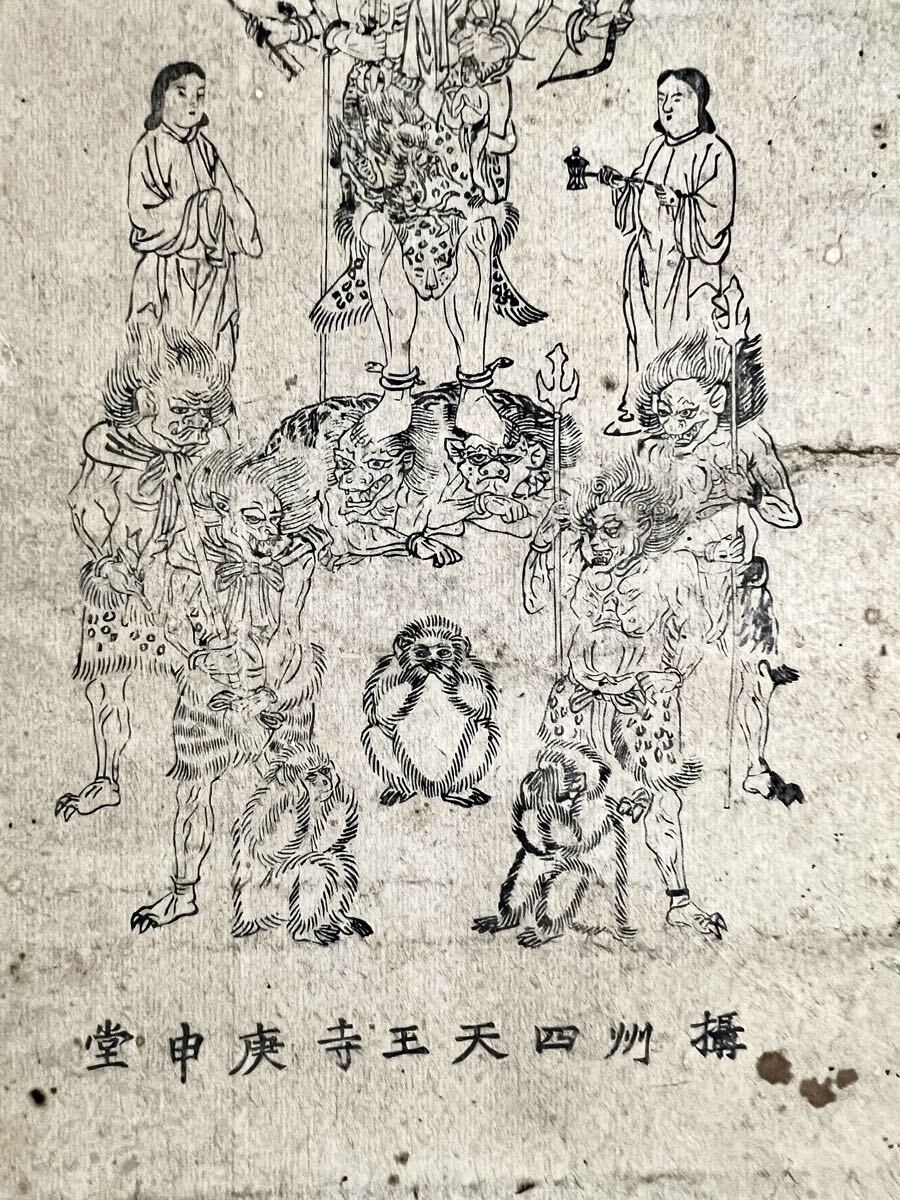 攝州四天王寺庚申堂